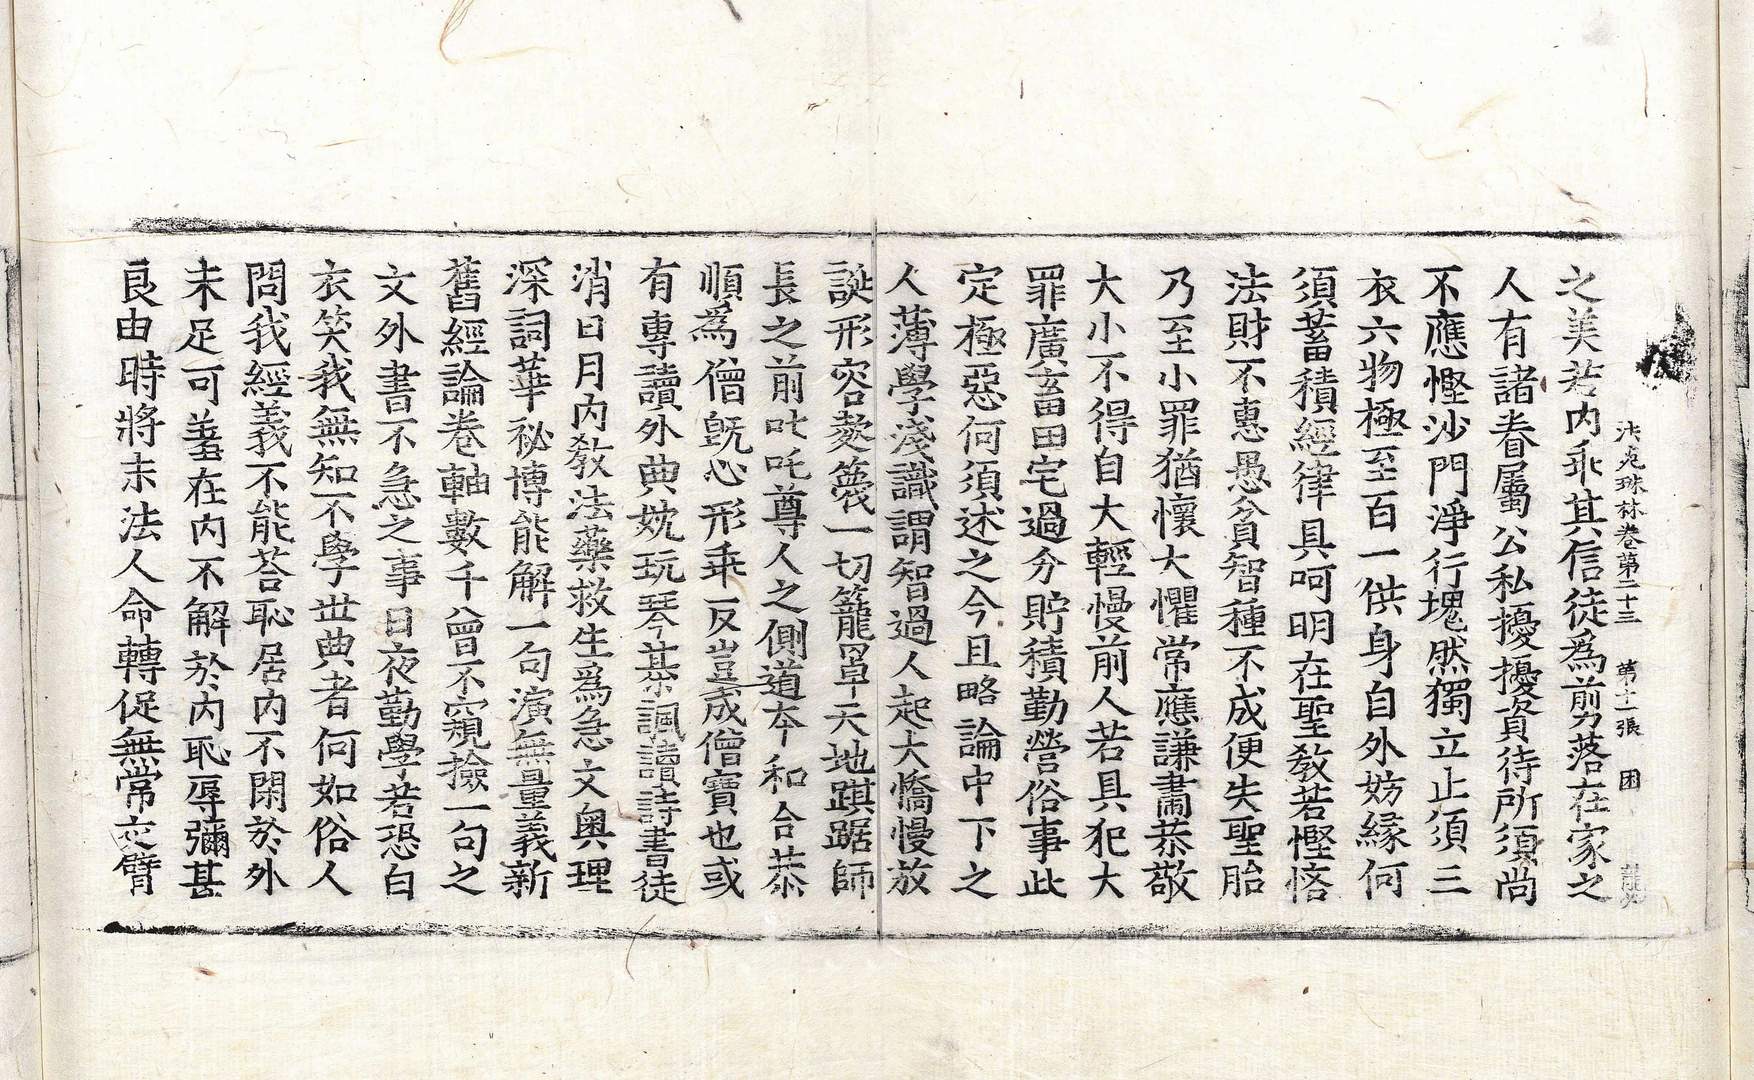 法苑珠林卷第二十三　第十一張　困
之美若內乖其信徒爲剪落在家之
人有諸眷屬公私擾擾資待所須尚
不應慳沙門淨行塊然獨立止須三
衣六物極至百一供身自外妨緣何
須蓄積經律具呵明在聖教若慳悋
法財不惠愚貧智種不成便失聖胎
乃至小罪猶懷大懼常應謙肅恭敬
大小不得自大輕慢前人若具犯大
罪廣畜田宅過分貯積勤營俗事此
定極惡何須述之今且略論中下之
人薄學淺識謂智過人起大憍慢放
誕形容欻蔑一切籠罩天地踑踞師
長之前叱吒尊人之側道本和合恭
順爲僧旣心形乖反豈成僧寶也或
有專讀外典躭玩琴碁諷讀詩書徒
消日月內教法藥救生爲急文奧理
深詞華祕博能解一句演無量義新
舊經論卷軸數千曾不窺撿一句之
文外書不急之事日夜勤學若恐白
衣笑我無知不學世典者何如俗人
問我經義不能荅恥居內不閑於外
未足可羞在內不解於內恥辱彌甚
良由時將末法人命轉促無常交臂